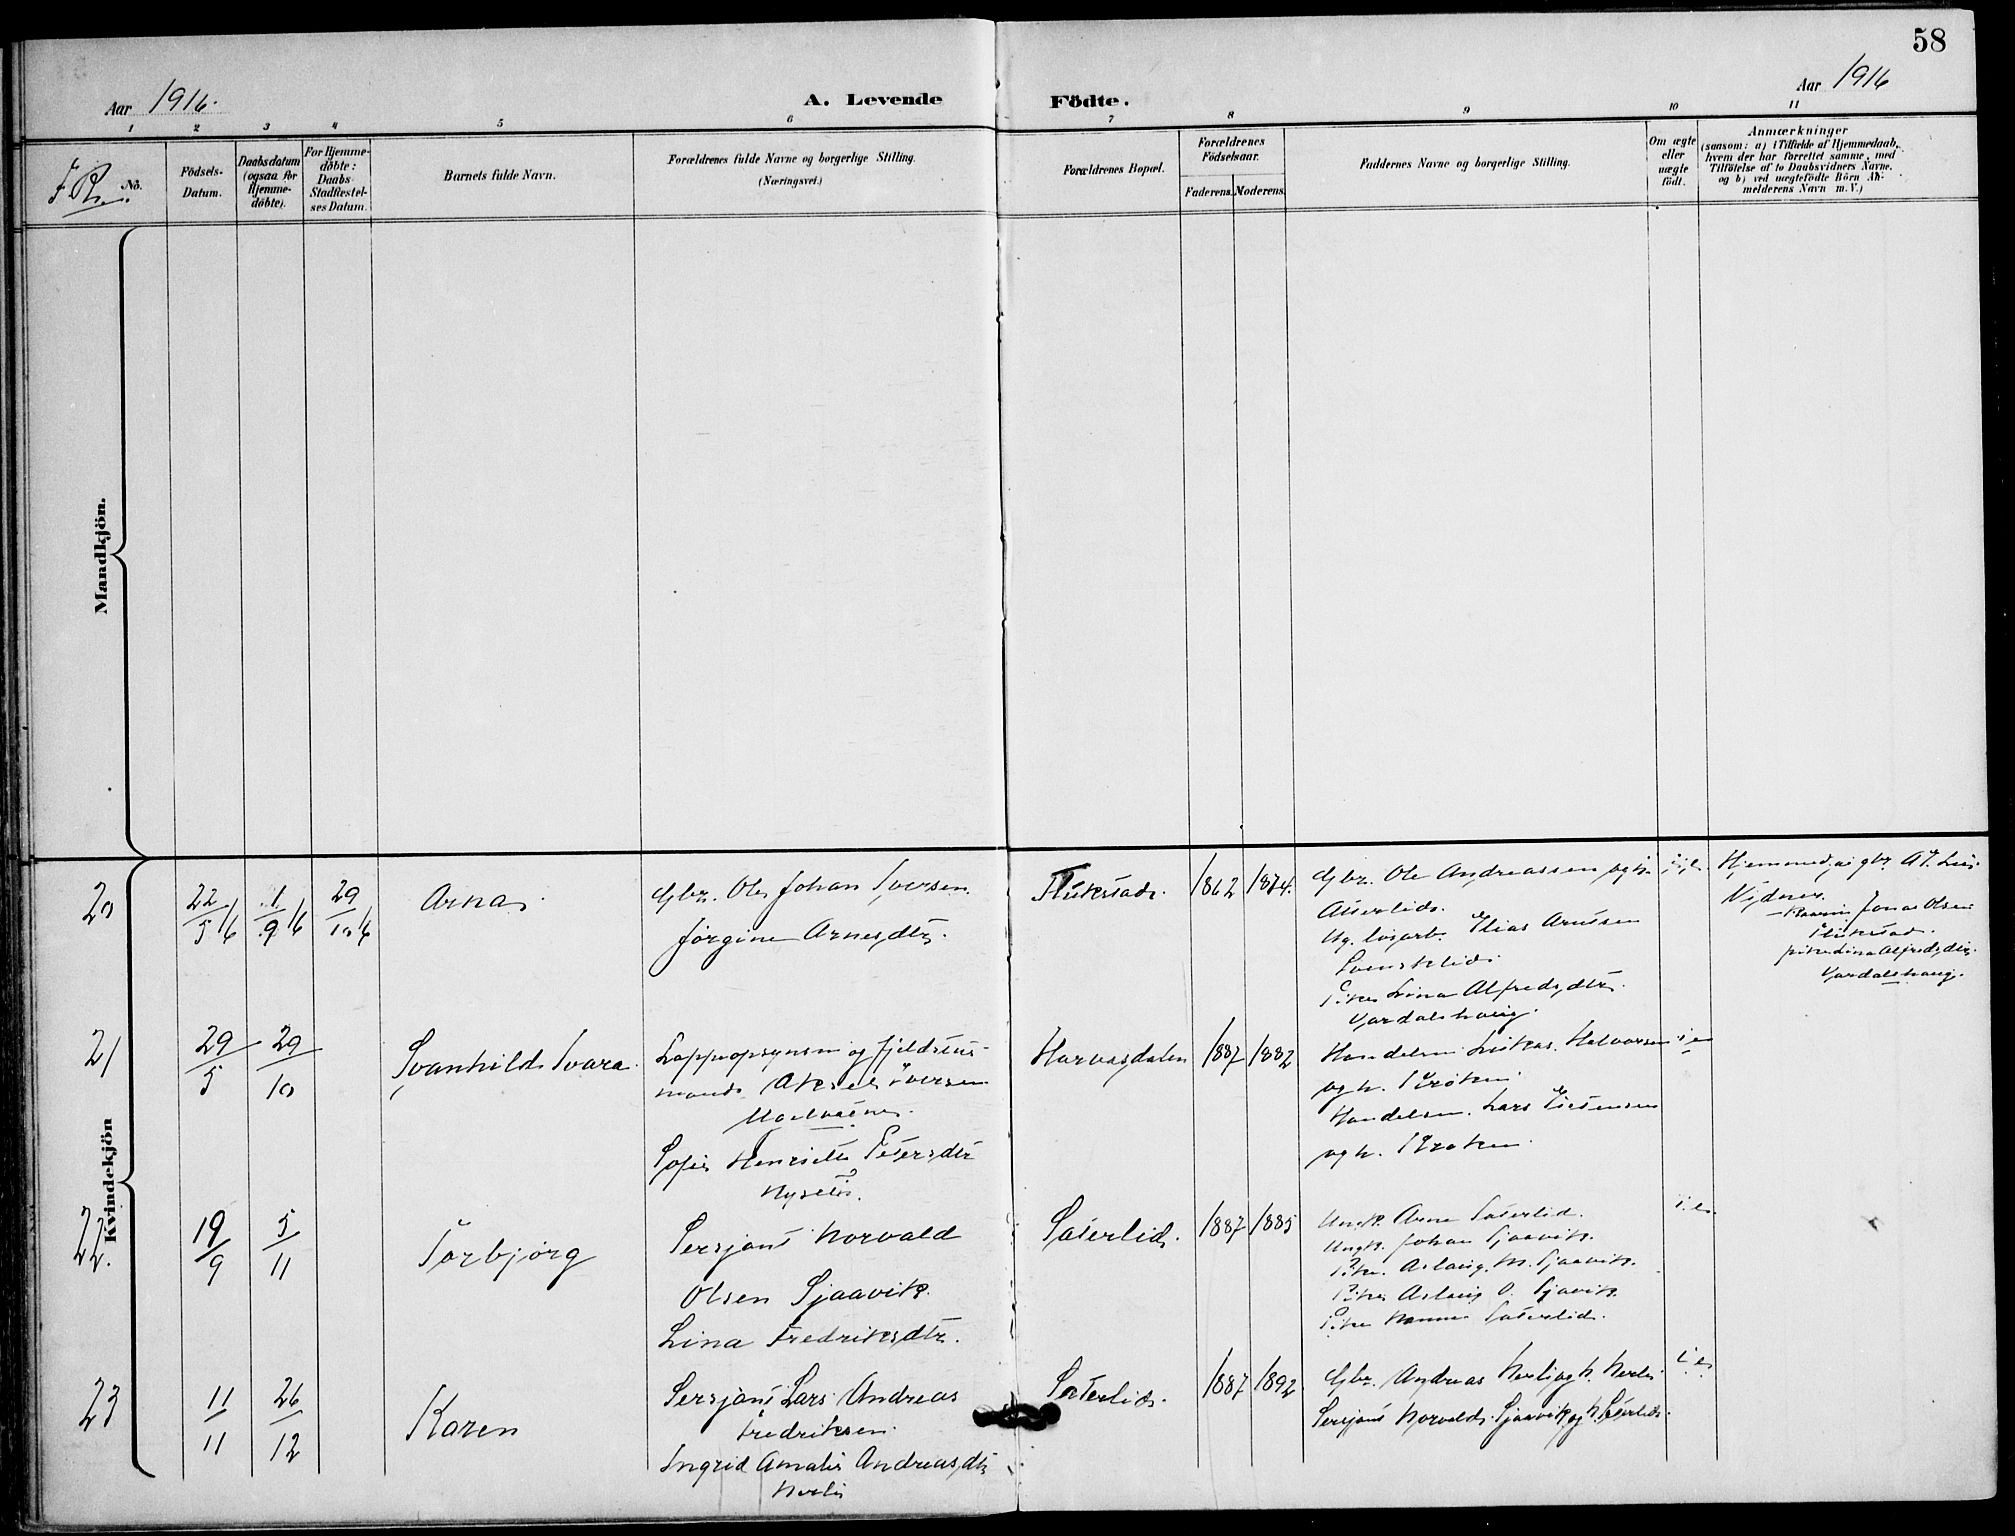 58
Aar 1916.
A. Levende
Födte.
Aar 1916
1 2 3 4 5 6 7 8 9 10 11
No.
Födsels-
Datum.
Daabsdatum
(ogsaa for
Hjemme-
döbte).
For Hjemme-
döbte:
Daabs-
Stadfæstel-
ses Datum.
Barnets fulde Navn.
Forældrenes fulde Navne og borgerlige Stilling.
(Næringsvei.)
Forældrenes Bopæl.
Forældrenes
Födselsaar.
Faderens. Moderens.
Faddernes Navne og borgerlige Stilling.
Om ægte
eller
uægte
födt.
Anmærkninger
(saasom: a) i Tilfælde af Hjemmedaab,
hvem der har forrettet samme, med
Tilföielse af to Daabsvidners Navne,
og b) ved uægtefödte Börn An-
melderens Navn m. V.)
Mandkjön.
Kvindekjön
20
22/5 16
1/9 16
29/10 16
Arna
Gbr. Ole Johan Iversen
Jørgine Arnesdtr.
1862 1874.
Gbr. Ole Andreassen og h.
Elias
Pike Lina Alfredsdtr.
Hjemmed. av gbr.
Jonas Olsen
pike Lina Alfredsdtr.
21
29/5
29/10
Svanhild Svara
Lappopsynsm og fjeldstue-
mand Aksel Iversen
Sofie Henriette Petersdtr
Harvasdalen
1887 1882
Handelsm. Lukas Halvorsen
og h. Krøken
Handelsm. Lars
og h. Krøken.
i e
22.
19/9
5/11
Torbjørg
Sersjant Norvald
Olsen Sjaavik.
Lina Fredriksdtr.
Sæterlid.
1887 1885
Ungk. Arne Sæterlid.
Ungk. Johan Sjaavik.
Pike Aslaug M. Sjaavik.
Pike Aslaug O. Sjavik.
Pike Nanna Sæterlid.
i e
23
11/11
26/12
Karen
Sersjant Lars Andreas
Fredriksen.
Ingrid Amalie Andreasdtr
Nerli
Sæterlid.
1887 1892
Gbr. Andreas Nerli og h. Nerli
Sersjant Norvald Sjaavik og h. Sæterlid.
i e